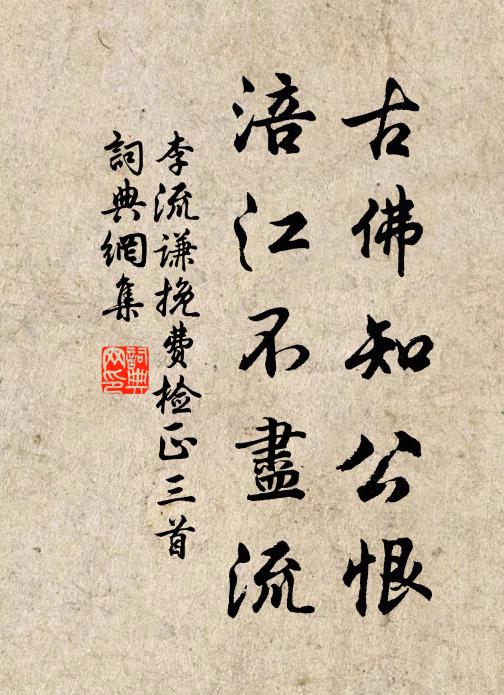 古佛知公恨
涪江不盡流
李流谦挽费检正三首
詞典網集
詞典网印